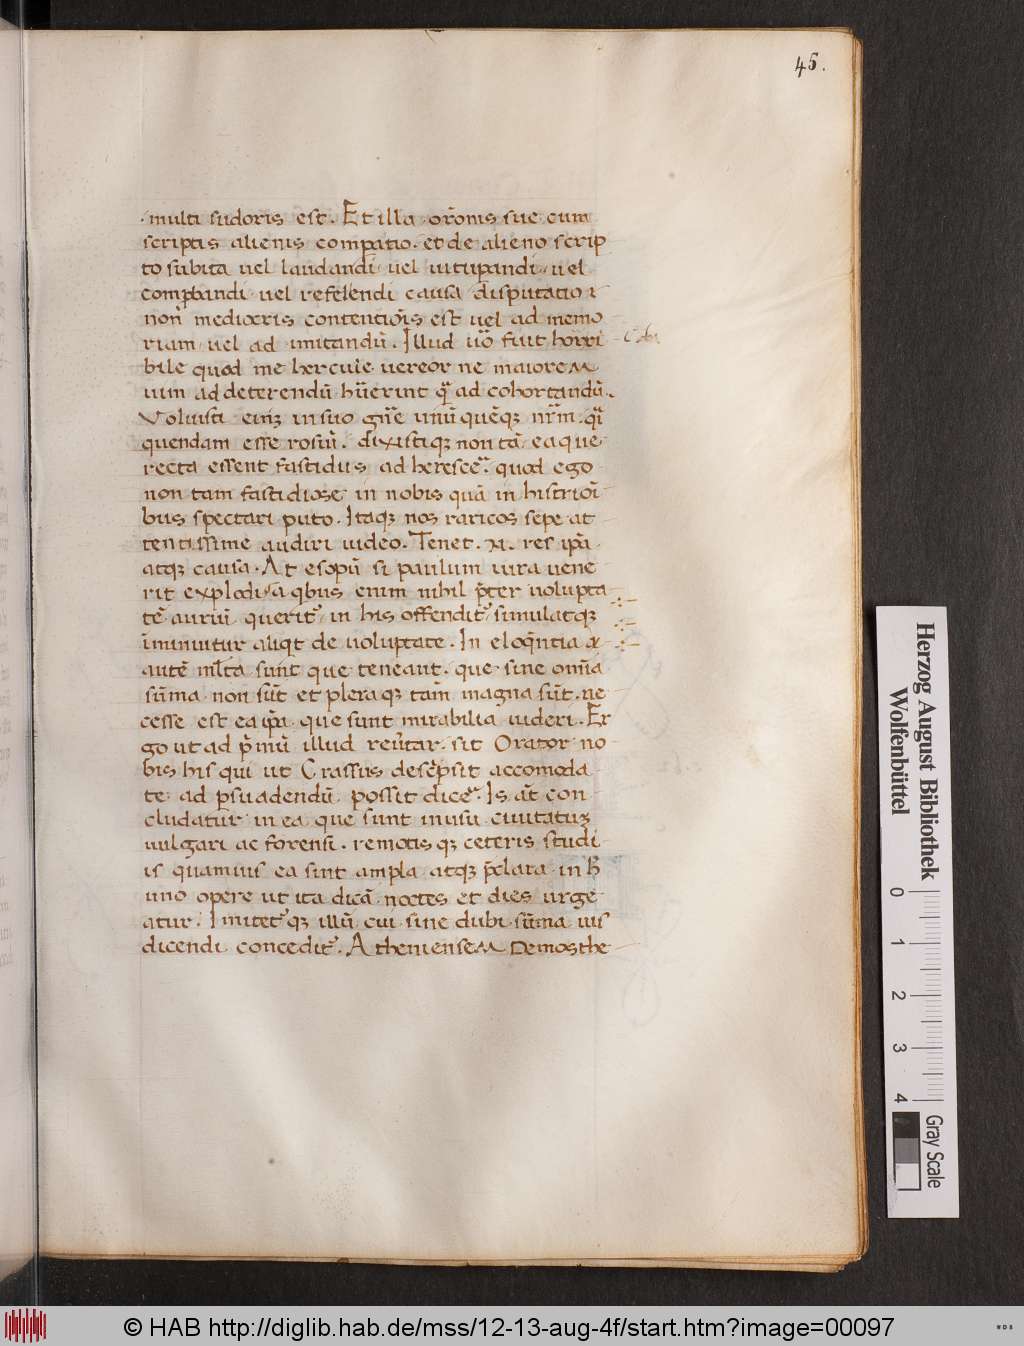 45.
multi sudoris est. Et illa or̄onis sue cum
scriptis alienis compatio. et de alieno scrip
to subita uel laudandi uel uitupandi uel
comp̱bandi uel refelendi causa disputatio
non mediocris contentiōis est uel ad memo
riam uel ad imitandū. Illud ūo fuit horri
bile quod me hercule uereor ne maiorem
uim ad deterendū hūerint q̄ ad cohortandū.
Voluisti enī in suo gn̄e unū quēqꝫ nr̄m. q̄i
quendam esse rosiū. dixistiqꝫ non tā ea que
recta essent fastidiis adherescē. quod ego
non tam fastidiose in nobis quā in histrioī
bus spectari puto. Itaqꝫ nos raricos sepe at
tentissime audiri uideo. Tenet. res ip̄a
atqꝫ causa. At esopū si paulum irra uene
rit explodi sa qbus enim nihil p̄ter uolupta
tē auriū querit̄ in his offendit̄ simulatqꝫ
īminuitur aliqt de uoluptate. In eloq̄ntia
autē ml̄ta sunt que teneant. que sine om̄ia
sūma non sūt et pleraqꝫ tam̄ magna sūt. ne
cesse est ea ip̄a que sunt mirabilia uideri. Er
go ut ad p̄mū illud reūtar. sit Orator no
bis his qui ut Crassus desc̄psit accomoda
te ad p̱suadendū possit dicē. Is aūt con
cludatur in ea que sunt in usu ciuitatuꝫ
uulgari ac forensi. remotis qꝫ ceteris studi
is quamuis ea sint ampla atqꝫ p̄clara in h̄
uno opere ut ita dicā noctes et dies urge
atur. Imitet̄qꝫ illū cui sine dubi sūma uis
dicendi concedit̄. Atheniensem Demosthe
Herzog August Bibliothek
Wolfenbüttel
0 1 2 3 4
Gray Scale
© HAB http://diglib.hab.de/mss/12-13-aug-4f/start.htm?image=00097